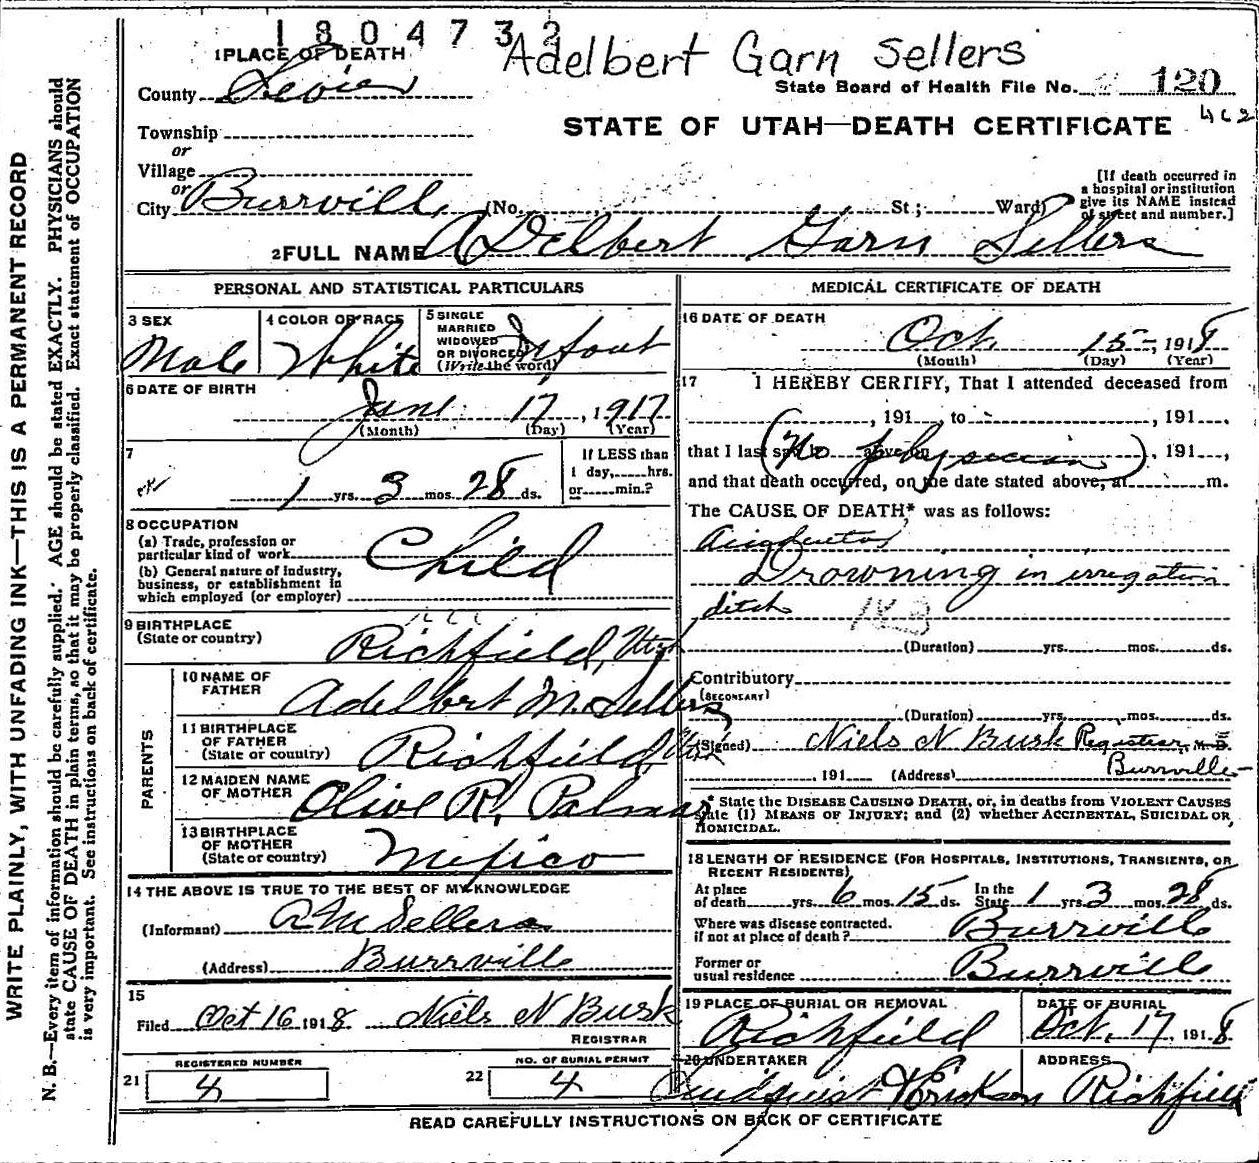 1804732
Adelbert Garn Sellers
1 PLACE OF DEATH
County Sevier
State Board of Health File No. 120
462
STATE OF UTAH—DEATH CERTIFICATE
Township
or
Village
or
City Burrville (No. St; Ward)
[If death occurred in
a hospital or institution
give its NAME instead
of street and number.]
2 FULL NAME ADelbert Garn Sellers
PERSONAL AND STATISTICAL PARTICULARS
3 SEX
Male
4 COLOR OR RACE
White
5 SINGLE
MARRIED
WIDOWED
OR DIVORCED
(Write the word)
Infant
6 DATE OF BIRTH
June 17, 1917
(Month) (Day) (Year)
7
1 yrs. 3 mos. 28 ds.
If LESS than
1 day, hrs.
or min.?
8 OCCUPATION
(a) Trade, profession or
particular kind of work
(b) General nature of industry,
business, or establishment in
which employed (or employer)
Child
9 BIRTHPLACE
(State or country)
Richfield, Utah
PARENTS
10 NAME OF
FATHER
Adelbert M. Sellers
11 BIRTHPLACE
OF FATHER
(State or country)
Richfield, Utah
12 MAIDEN NAME
OF MOTHER
Olive R. Palmer
13 BIRTHPLACE
OF MOTHER
(State or country)
Mexico
14 THE ABOVE IS TRUE TO THE BEST OF MY KNOWLEDGE
(Informant) A M Sellers
(Address) Burrville
15
Filed Oct 16 1918. Niels N Busk
REGISTRAR
REGISTERED NUMBER
21 4
NO. OF BURIAL PERMIT
22 4
MEDICAL CERTIFICATE OF DEATH
16 DATE OF DEATH
Oct. 15, 1918
(Month) (Day) (Year)
17 I HEREBY CERTIFY, That I attended deceased from
, 191 , to , 191 .
that I last saw h alive on , 191 ,
(No physician)
and that death occurred, on the date stated above, at m.
The CAUSE OF DEATH* was as follows:
Accidental
Drowning in irrigation
ditch
183
(Duration) yrs. mos. ds.
Contributory
(SECONDARY)
(Duration) yrs. mos. ds.
(Signed) Niels N Busk Registrar, M. D.
191 (Address) Burrville
* State the DISEASE CAUSING DEATH, or, in deaths from VIOLENT CAUSES
state (1) MEANS OF INJURY; and (2) whether ACCIDENTAL, SUICIDAL OR,
HOMICIDAL.
18 LENGTH OF RESIDENCE (FOR HOSPITALS, INSTITUTIONS, TRANSIENTS, OR
RECENT RESIDENTS)
At place
of death yrs. 6 mos. 15 ds. In the
State 1 yrs. 3 mos. 28 ds.
Where was disease contracted.
if not at place of death? Burrville
Former or
usual residence Burrville
19 PLACE OF BURIAL OR REMOVAL
Richfield
DATE OF BURIAL
Oct. 17, 1918
20 UNDERTAKER
Lundquist & Erickson
ADDRESS
Richfield
READ CAREFULLY INSTRUCTIONS ON BACK OF CERTIFICATE
WRITE PLAINLY, WITH UNFADING INK—THIS IS A PERMANENT RECORD
N. B.—Every item of information should be carefully supplied. AGE should be stated EXACTLY. PHYSICIANS should
state CAUSE OF DEATH in plain terms, so that it may be properly classified. Exact statement of OCCUPATION
is very important. See instructions on back of certificate.